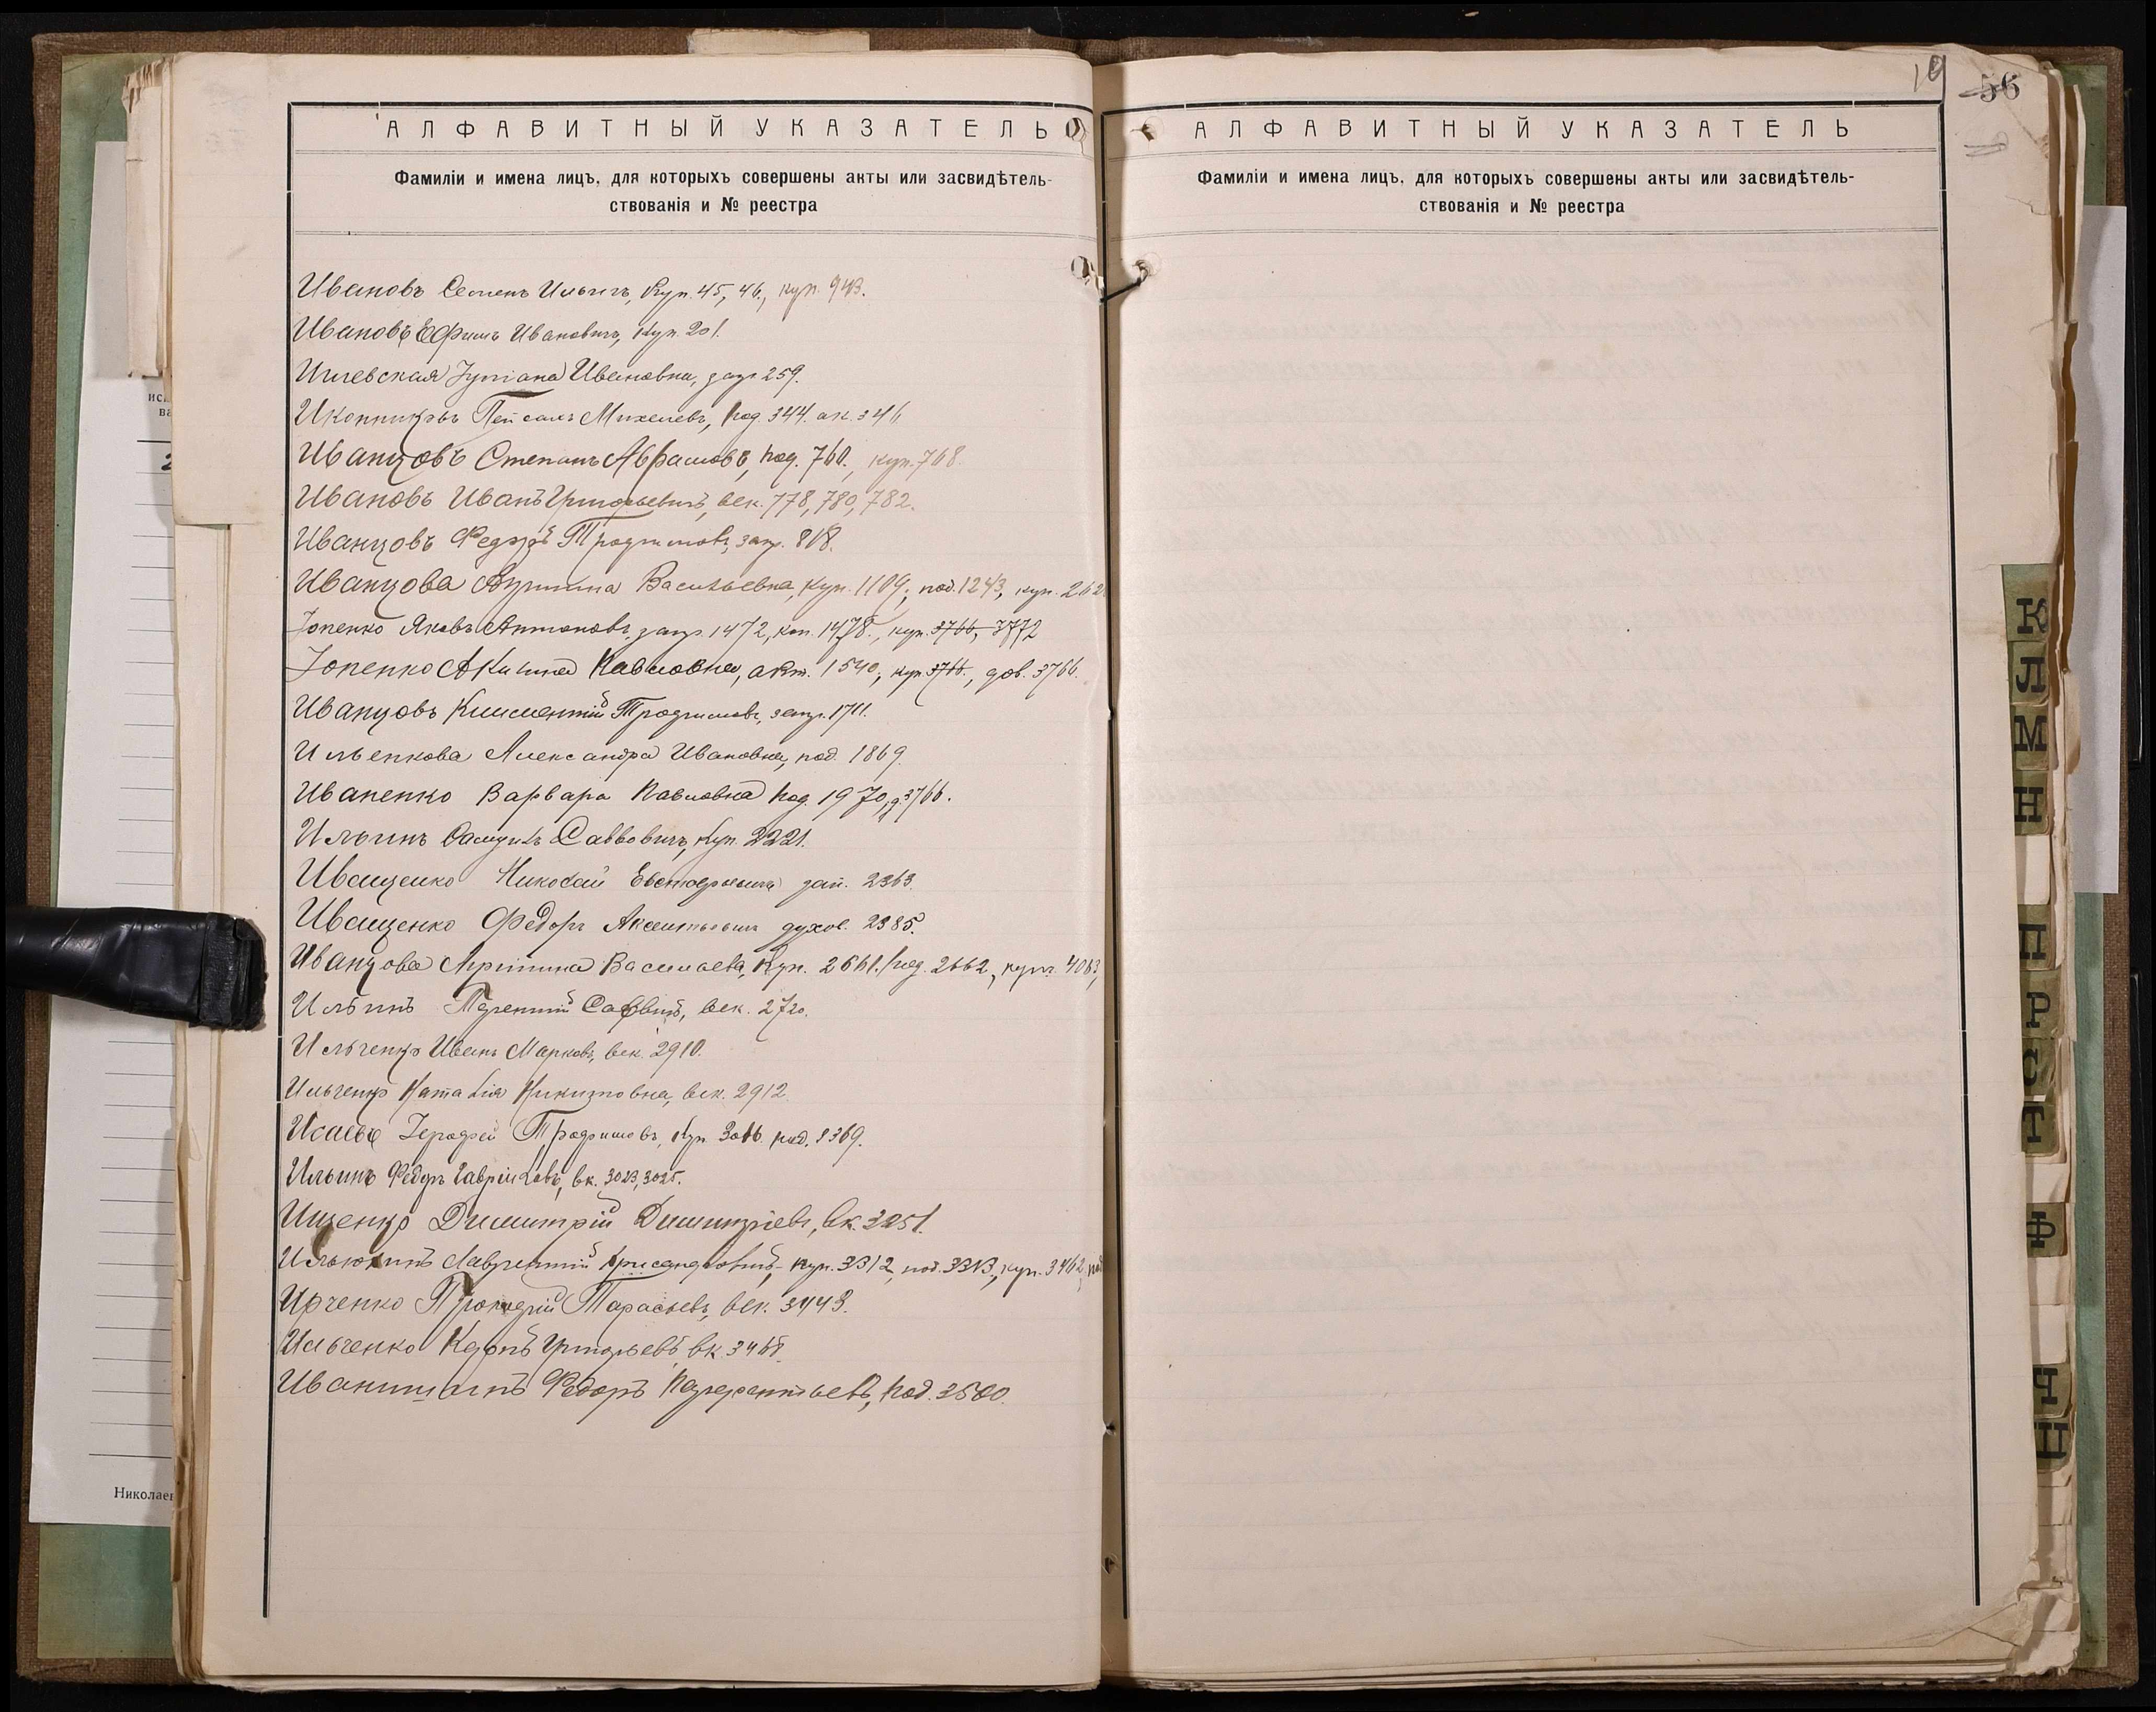 АЛФАВИТНЫЙ УКАЗАТЕЛЬ
Фамиліи и имена лицъ, для которыхъ совершены акты или засвидѣтель-
ствованія и № реестра
Ивановъ Семенъ Ильичъ, Куп. 45, 46, куп. 943.
Ивановъ Ефимъ Ивановичъ, куп. 201.
Іуліана Ивановна, 259.
Иконниковъ Михелевъ, под. 344. 346
Иванцовъ Степанъ Аврамовъ, под. 760., куп. 768.
Ивановъ Иванъ Григорьевичъ, век. 778, 780, 782.
Иванцовъ Федоръ Трофимовъ, запр. 818.
Иванцова Васильевна, куп. 1109; под. 1243, куп.
Іопенко Яковъ Антоновъ, запр. 1472, 1478., куп. 3766, 3772
Іопенко Акилина Павловна, акт. 1540, куп. 3766., дов. 3766.
Иванцовъ Климентій Трофимовъ, запр. 1711.
Ильенкова Александра Ивановна, под. 1869.
Иваненко Варвара Павловна под. 1970, д. 3766.
Ильинъ Самуилъ Саввовичъ, куп. 2221.
Иващенко Николай 2363.
Иващенко Федоръ Аксентьевичъ духов. 2385.
Иванцова Васильева, Куп. 2661. под. 2662, куп. 4063,
Ильинъ Терентій Саввичъ, век. 2720.
Ильченко Иванъ Марковъ, век. 2910.
Ильченко Наталія Никитовна, век. 2912.
Исаевъ Іерофей Трофимовъ, куп. под.
Ильинъ Федоръ Гавріиловъ, вк. 3023, 3025.
Ищенко Димитрій Димитріевъ, вк. 3251.
Лаврентій куп. 3312, под. 3313, куп. 3462,
Тарасьевъ, век. 3443.
Ильченко Карпъ Григорьевъ вк. 3468.
Федоръ под. 3500.
19
56
АЛФАВИТНЫЙ УКАЗАТЕЛЬ
Фамиліи и имена лицъ, для которыхъ совершены акты или засвидѣтель-
ствованія и № реестра
К
Л
М
Н
П
Р
С
Т
Ф
Ч
Николаев